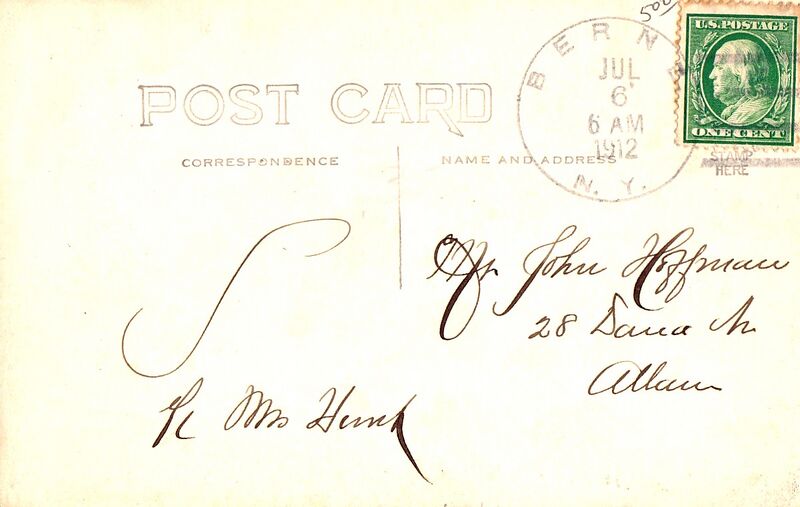 500
U.S. POSTAGE
ONE CENT
BERNE
JUL
6
6 AM
1912
N. Y.
POST CARD
CORRESPONDENCE
NAME AND ADDRESS
STAMP
HERE
Mr John Hoffman
28 Dana Av
Albany
Mrs